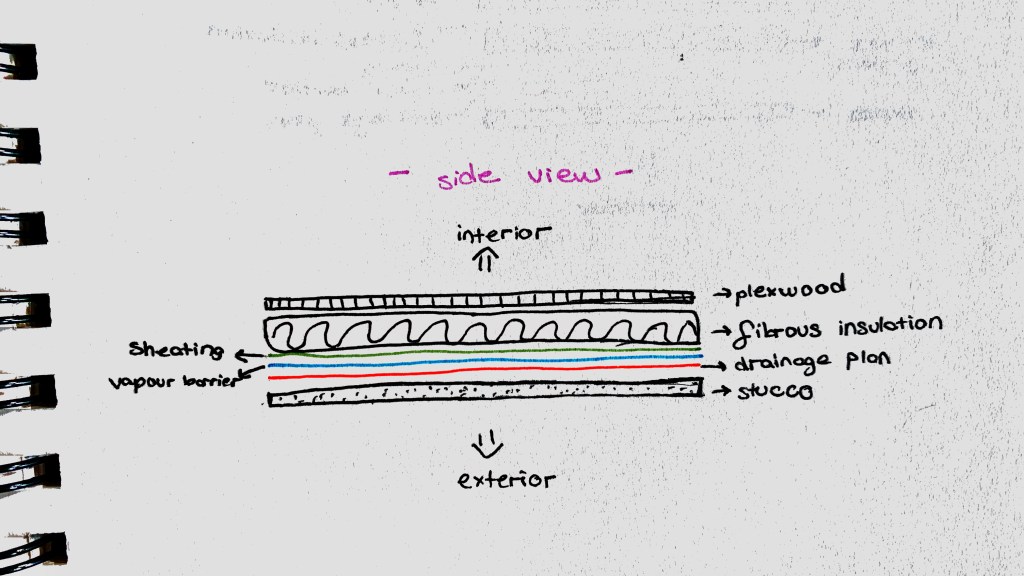 - side view -
interior
plexwood
fibrous insulation
sheating
drainage plan
vapour barrier
stucco
exterior